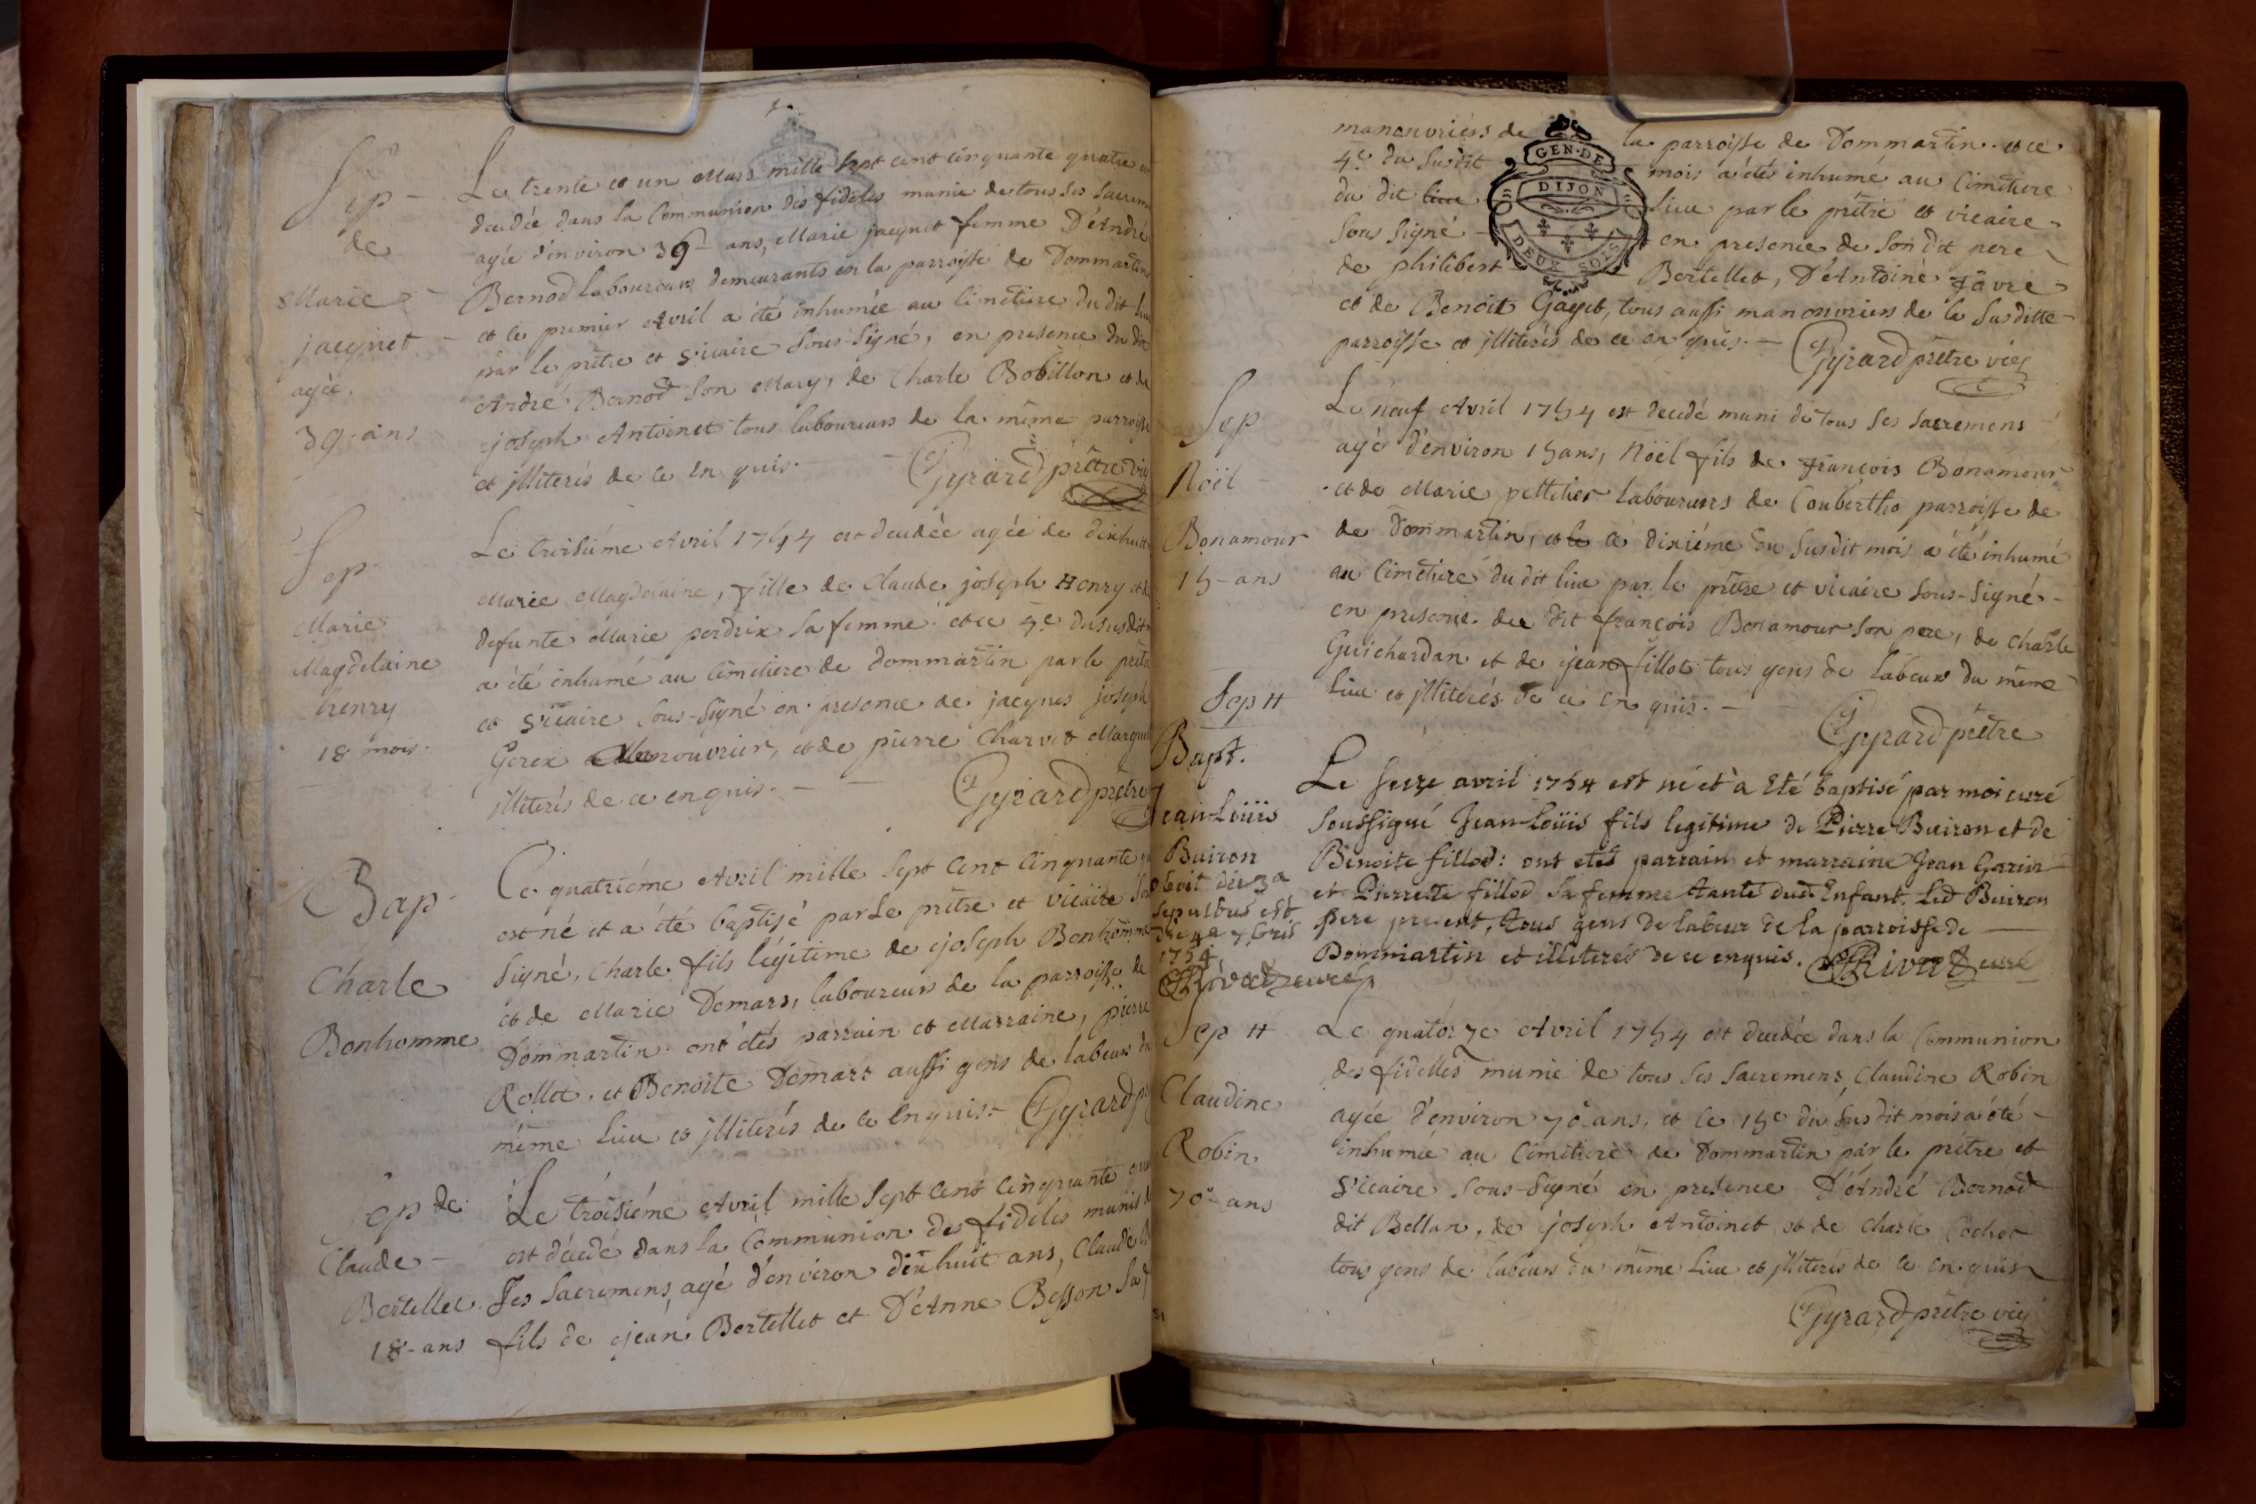 Sep
de
Marie
jacquet
agée
39 ans
Le trente et un Mars mille sept cent cinquante quatre est
decedée dans la Communion des fideles munie de tous ses sacrem
agée d'environ 39 ans, Marie jacquet femme D'André
Bernod laboureurs demeurants en la parroisse de Dommartin
et le premier Avril a été inhumée au Cimetiere du dit lieu
par le prêtre et vicaire sous-signé, en presence du dit
André Bernod son Mary, de Charle Bobillon et de
joseph Antoinet tous laboureurs de la même parroisse
et jlliterés de ce en quis.
Gyrard prêtre vic
Sep
Marie
Magdelaine
henry
18 mois
Le troisiéme Avril 1754 est decedée agée de dixhuit
Marie Magdelaine, fille de Claude joseph Henry et de
defunte Marie perdrix sa femme et ce 4e du susdit
a été inhumé au Cimetiere de Dommartin par le prêtre
et vicaire sous-signé en presence de jacques joseph
Gerex Manouvrier, et de pierre Charvet
jlliterés de ce enquis.
Gyrard prêtre
Bap
Charle
Bonhomme
Ce quatriéme Avril mille sept cent cinquante
est né et a été baptisé par Le prêtre et vicaire
signé, Charle fils légitime de joseph Bonhomme
et de Marie Demars, laboureurs de la parroisse de
Dommartin. ont étés parrain et Marraine, pierre
Rollet, et Benoîte Demars aussi gens de labeur du
même lieu et jlliterés de ce enquis. Gyrard
Sep de
Claude
Bertellet
18 ans
Le troisiéme Avril mille sept cent cinquante
est décedé dans la Communion des fideles munis de
ses sacremens, agé d'environ dix huit ans, Claude
fils de jean Bertellet et D'Anne Besson sa f
manouvriers de la parroisse de Dommartin. et ce
4e du susdit mois a été inhumé au Cimetiere
du dit lieu par le prêtre et vicaire
sous signé en presence de son dit pere
de philibert Bertellet, D'Antoine favre
et de Benoit Gayet, tous aussi manouvriers de la susditte
parroisse et jlliterés de ce en quis. Gyrard prêtre vic
GEN·DE
DIJON
DEUX SOLS
Sep
Nöel
Bonamour
15 ans
Le neuf Avril 1754 est decedé muni de tous ses sacremens
agé d'environ 15 ans, Nöel fils de françois Bonamour
et de Marie pelletier laboureurs de Coubertho parroisse de
de Dommartin, et le ce dixiéme du susdit mois a été inhumé
au Cimetiere du dit lieu par le prêtre et vicaire sous-signé
en presence du dit françois Bonamour son pere, de Charle
Guichardan et de jean fillot tous gens de labeur du même
lieu et jlliterés de ce en quis.
Gyrard prêtre
Sep H
Bapt.
Jean-Loüis
Buiron
obiit die 3a
sepultus est
die 4a 7bris
1754
Rivat curé
Le seize avril 1754 est né et à été baptisé par moi curé
soussigné Jean-Loüis fils legitime de Pierre Buiron et de
Benoite fillod: ont etés parrain et marraine Jean Garin
et Pierrette fillod sa femme tante dud. Enfant. Led Buiron
pere present, tous gens de labeur de la parroisse de
Dommartin et illiterés de ce enquis. Rivat curé
Sep H
Claudine
Robin
70 ans
Le quatorze Avril 1754 est decedée dans la Communion
des fidelles munie de tous ses sacremens, Claudine Robin
agée d'environ 70 ans, et ce 15e du susdit mois a été
inhumée au Cimetiere de Dommartin par le prêtre et
vicaire sous-signé en presence D'André Bernod
dit Bellan, de joseph Antoinet et de Charle Cochet
tous gens de labeur du même lieu et jlliterés de ce en quis
Gyrard prêtre vic